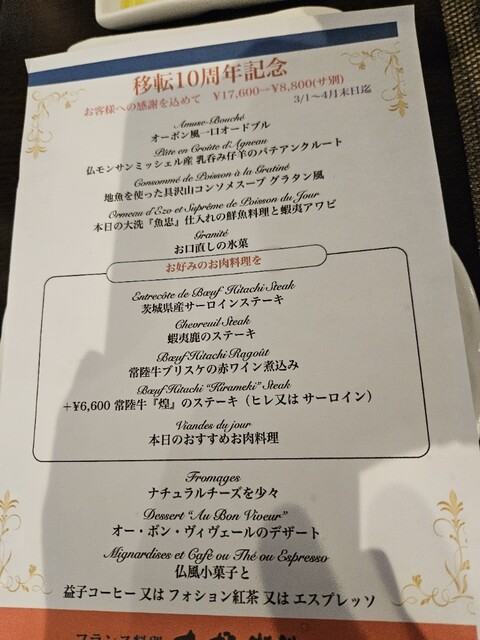 移転10周年記念
お客様への感謝を込めて ¥17,600→¥8,800(サ別)
3/1〜4月末日迄
Amuse-Bouché
オーボン風一口オードブル
Pâte en Croûte d'Agneau
仏モンサンミッシェル産 乳呑み仔羊のパテアンクルート
Consommé de Poisson à la Gratiné
地魚を使った具沢山コンソメスープ グラタン風
Ormeau d'Ezo et Suprême de Poisson du Jour
本日の大洗『魚忠』仕入れの鮮魚料理と蝦夷アワビ
Granité
お口直しの氷菓
お好みのお肉料理を
Entrecôte de Bœuf Hitachi Steak
茨城県産サーロインステーキ
Chevreuil Steak
蝦夷鹿のステーキ
Bœuf Hitachi Ragoût
常陸牛ブリスケの赤ワイン煮込み
Bœuf Hitachi "Kirameki" Steak
+¥6,600 常陸牛『煌』のステーキ（ヒレ又は サーロイン）
Viandes du jour
本日のおすすめお肉料理
Fromages
ナチュラルチーズを少々
Dessert "Au Bon Viveur"
オー・ボン・ヴィヴェールのデザート
Mignardises et Cafe ou Thé ou Espresso
仏風小菓子と
益子コーヒー 又は フォション紅茶 又は エスプレッソ
フランス料理